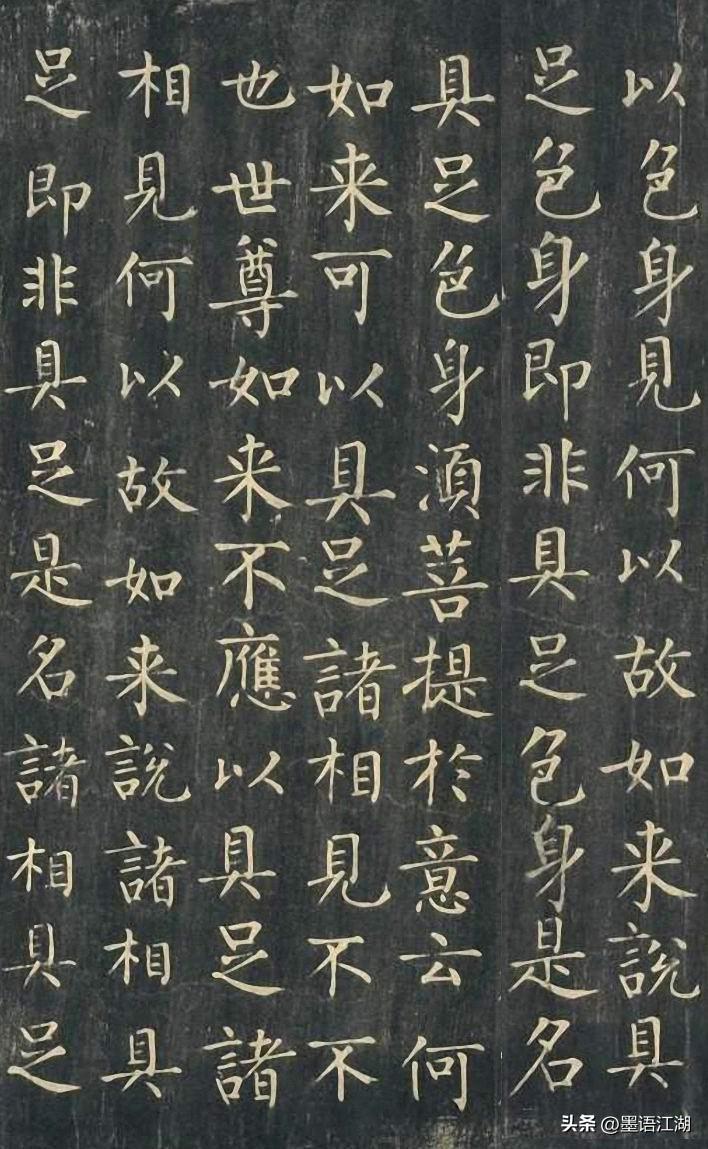 以色身見何以故如来說具
足色身即非具足色身是名
具足色身須菩提於意云何
如来可以具足諸相見不不
也世尊如来不應以具足諸
相見何以故如来說諸相具
足即非具足是名諸相具足
头条 @墨语江湖